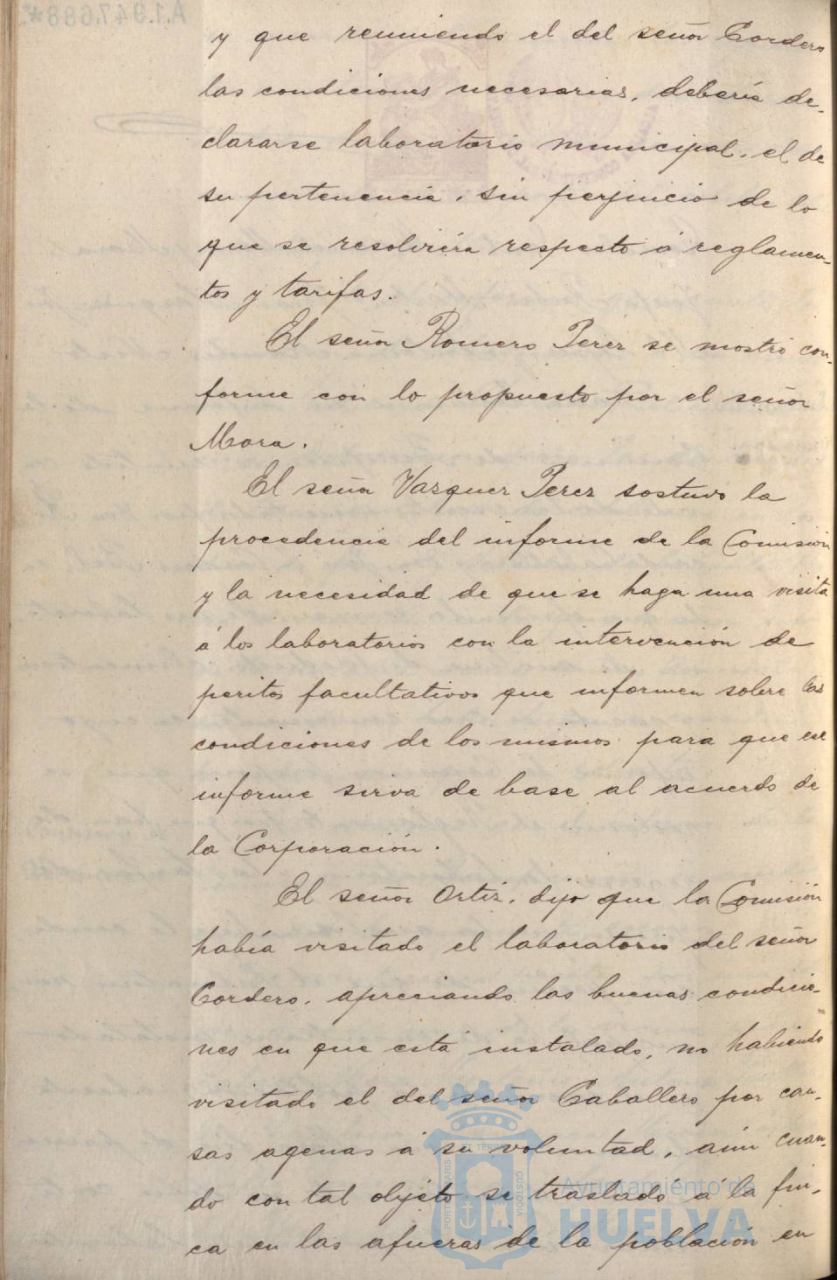 A.1.947.688*
y que reuniendo el del señor Cordero
las condiciones necesarias, debería de-
clararse laboratorio municipal, el de
su pertenencia, sin perjuicio de lo
que se resolviera respecto á reglamen-
tos y tarifas.
El señor Romero Perez se mostró con-
forme con lo propuesto por el señor
Mora.
El señor Vazquez Perez sostuvo la
procedencia del informe de la Comisión
y la necesidad de que se haga una visita
á los laboratorios con la intervención de
peritos facultativos que informen sobre las
condiciones de los mismos para que ese
informe sirva de base al acuerdo de
la Corporación.
El señor Ortiz, dijo que la Comisión
había visitado el laboratorio del señor
Cordero, apreciando las buenas condicio-
nes en que está instalado, no habiendo
visitado el del señor Caballero por cau-
sas agenas á su voluntad, aún cuan-
do con tal objeto se trasladó á la fin-
ca en las afueras de la población en
Ayuntamiento de
HUELVA